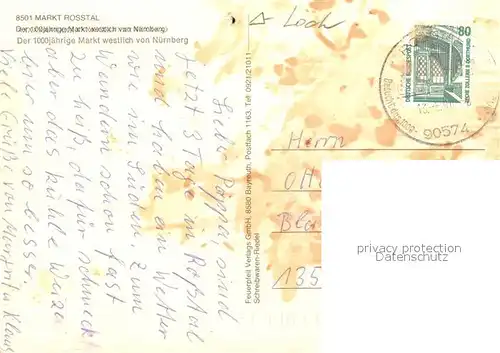 8501 MARKT ROSSTAL
Der 1000jährige Markt westlich von Nürnberg
Der 1000jährige Markt westlich von Nürnberg
Loch
80
DEUTSCHE BUNDESPOST
90574
Feuerpfeil Verlags GmbH, 8580 Bayreuth, Postfach 1163, Tel. 0921/21011
Schreibwaren-Riedel
Lieber Pappa, sind
jetzt 3 Tage in Roßtal
und haben ein Wetter
wie im Süden. Zum
Wandern schon fast
zu heiß, dafür schmeckt
aber das kühle Weizen
um so besser.
Viele Grüße von Margrit u Klaus
Herrn
Otto
135
privacy protection
Datenschutz